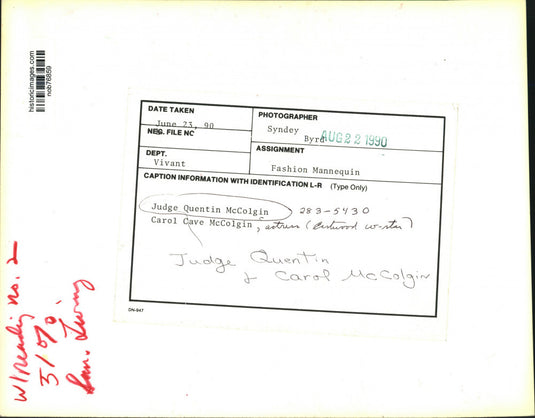 historicimages.com
nob76859
DATE TAKEN
June 23, 90
NEG. FILE NO
PHOTOGRAPHER
Syndey
Byrd
AUG 22 1990
DEPT.
Vivant
ASSIGNMENT
Fashion Mannequin
CAPTION INFORMATION WITH IDENTIFICATION L-R (Type Only)
Judge Quentin McColgin 283-5430
Carol Cave McColgin, actress (Eastwood
Judge Quentin
& Carol McColgin
DN-947
W/Reading no. 2
51%
Sun. Living